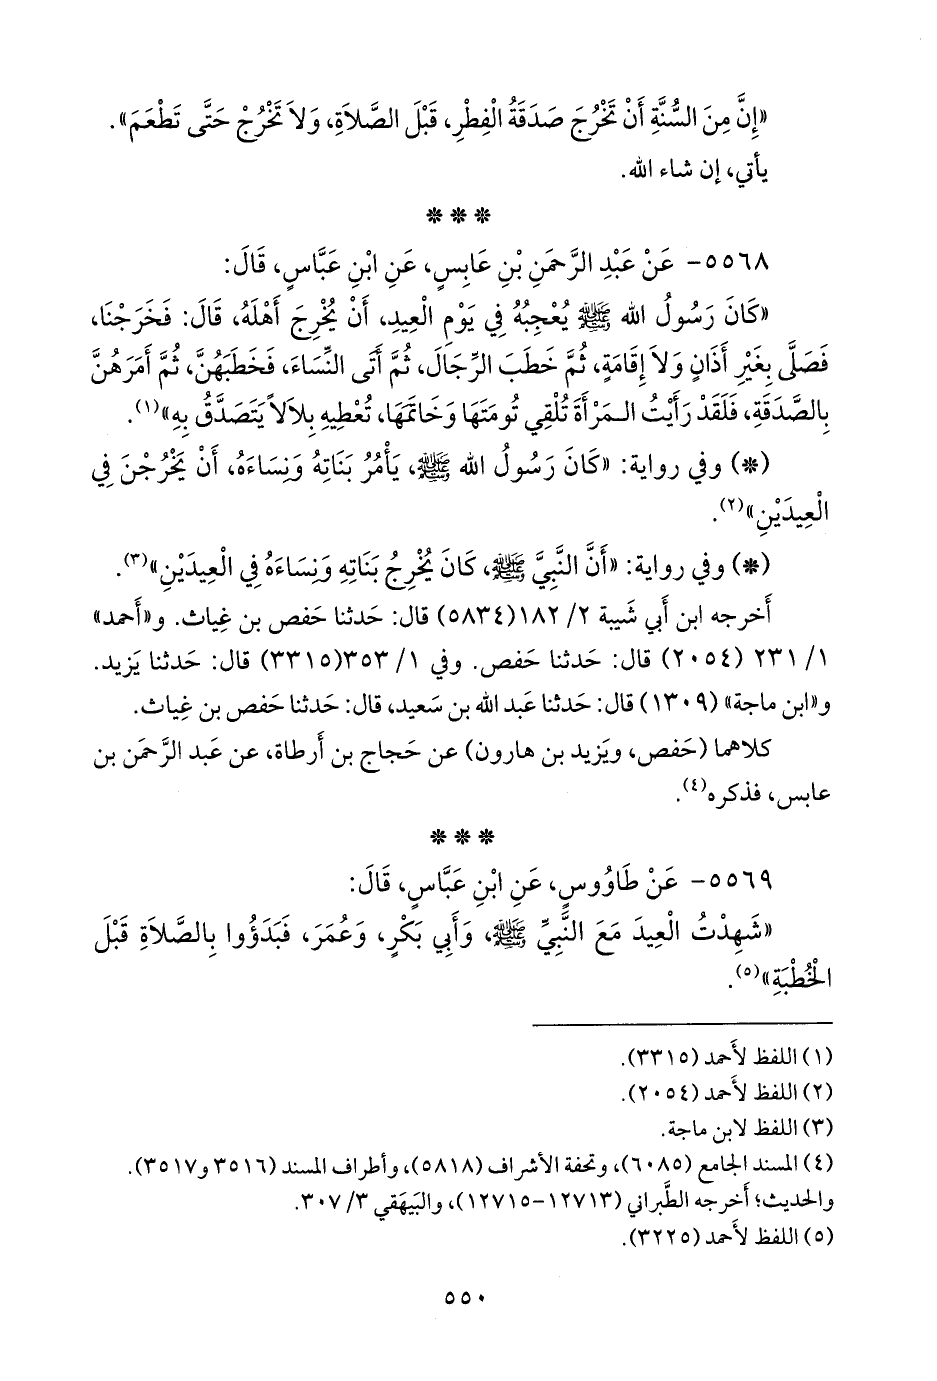 «إِنَّ مِنَ السُّنَّةِ أَنْ تَخْرُجَ صَدَقَةُ الْفِطْرِ، قَبْلَ الصَّلاَةِ، وَلاَ تَخْرُجْ حَتَّى تَطْعَمَ».
يأتي، إن شاء الله.
* * *
٥٥٦٨- عَنْ عَبْدِ الرَّحمَنِ بْنِ عَابِسٍ، عَنِ ابْنِ عَبَّاسٍ، قَالَ:
«كَانَ رَسُولُ الله ﷺ يُعْجِبُهُ فِي يَوْمِ الْعِيدِ، أَنْ يُخْرِجَ أَهْلَهُ، قَالَ: فَخَرَجْنَا،
فَصَلَّى بِغَيْرِ أَذَانٍ وَلاَ إِقَامَةٍ، ثُمَّ خَطَبَ الرِّجَالَ، ثُمَّ أَتَى النِّسَاءَ، فَخَطَبَهُنَّ، ثُمَّ أَمَرَهُنَّ
بِالصَّدَقَةِ، فَلَقَدْ رَأَيْتُ الـمَرْأَةَ تُلْقِي تُومَتَهَا وَخَاتَمَهَا، تُعْطِيهِ بِلاَلاً يَتَصَدَّقُ بِهِ»(١).
(*) وفي رواية: «كَانَ رَسُولُ الله ﷺ، يَأْمُرُ بَنَاتِهُ وَنِسَاءَهُ، أَنْ يَخْرُجْنَ فِي
الْعِيدَيْنِ»(٢).
(*) وفي رواية: «أَنَّ النَّبِيَّ ﷺ، كَانَ يُخْرِجُ بَنَاتِهِ وَنِسَاءَهُ فِي الْعِيدَيْنِ»(٣).
أَخرجه ابن أَبي شَيبة ٢/ ١٨٢(٥٨٣٤) قال: حَدثنا حَفص بن غِياث. و«أَحمد»
١/ ٢٣١ (٢٠٥٤) قال: حَدثنا حَفص. وفي ١/ ٣٥٣(٣٣١٥) قال: حَدثنا يَزيد.
و«ابن ماجة» (١٣٠٩) قال: حَدثنا عَبد الله بن سَعيد، قال: حَدثنا حَفص بن غِياث.
كلاهما (حَفص، ويَزيد بن هارون) عن حَجاج بن أَرطاة، عن عَبد الرَّحمَن بن
عابس، فذكره(٤).
* * *
٥٥٦٩- عَنْ طَاوُوسٍ، عَنِ ابْنِ عَبَّاسٍ، قَالَ:
«شَهِدْتُ الْعِيدَ مَعَ النَّبِيِّ ﷺ، وَأَبِي بَكْرٍ، وَعُمَرَ، فَبَدَؤُوا بِالصَّلاَةِ قَبْلَ
الْخُطْبَةِ»(٥).
(١) اللفظ لأَحمد (٣٣١٥).
(٢) اللفظ لأَحمد (٢٠٥٤).
(٣) اللفظ لابن ماجة.
(٤) المسند الجامع (٦٠٨٥)، وتحفة الأشراف (٥٨١٨)، وأطراف المسند (٣٥١٦ و٣٥١٧).
والحديث؛ أَخرجه الطَّبراني (١٢٧١٣-١٢٧١٥)، والبَيهَقي ٣/ ٣٠٧.
(٥) اللفظ لأَحمد (٣٢٢٥).
٥٥٠